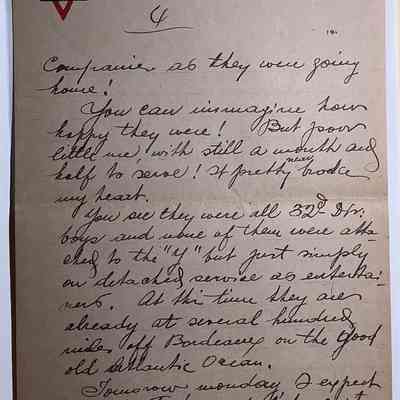 4
191
Companies as they were going
home!
You can inmagine how
happy they were! But poor
little me, with still a mouth and
half to serve! It pretty near broke
my heart.
You see they were all 32d Div.
boys and none of them were atta-
ched to the "Y" but just simply
on detached service as enterta-
ners. At this time they are
already at several hundred
miles off Bordeaux on the good
old Atlantic Ocean.
Tomorrow monday I expect